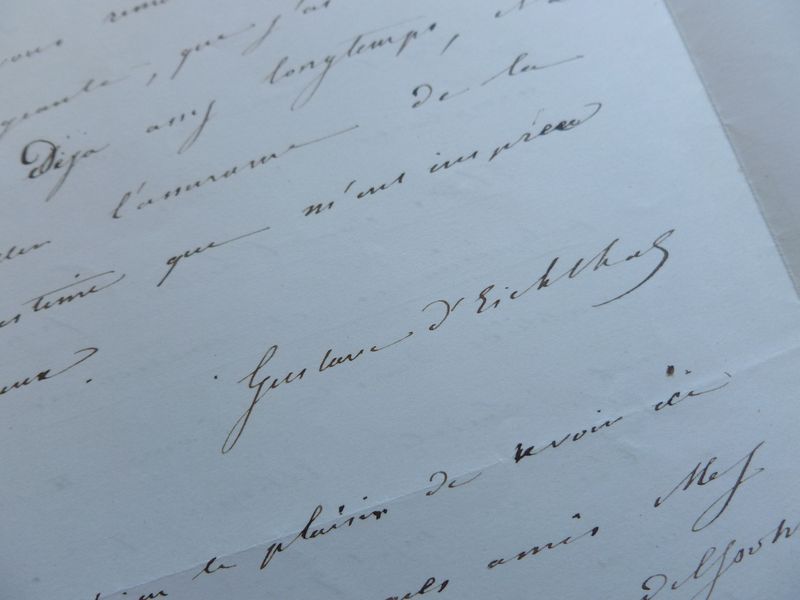 vous
que j'ai
Déjà assez longtemps,
l'assurance de la
estime que m'ont inspirée
Gustave d'Eichthal
le plaisir de revoir ici
amis Mes